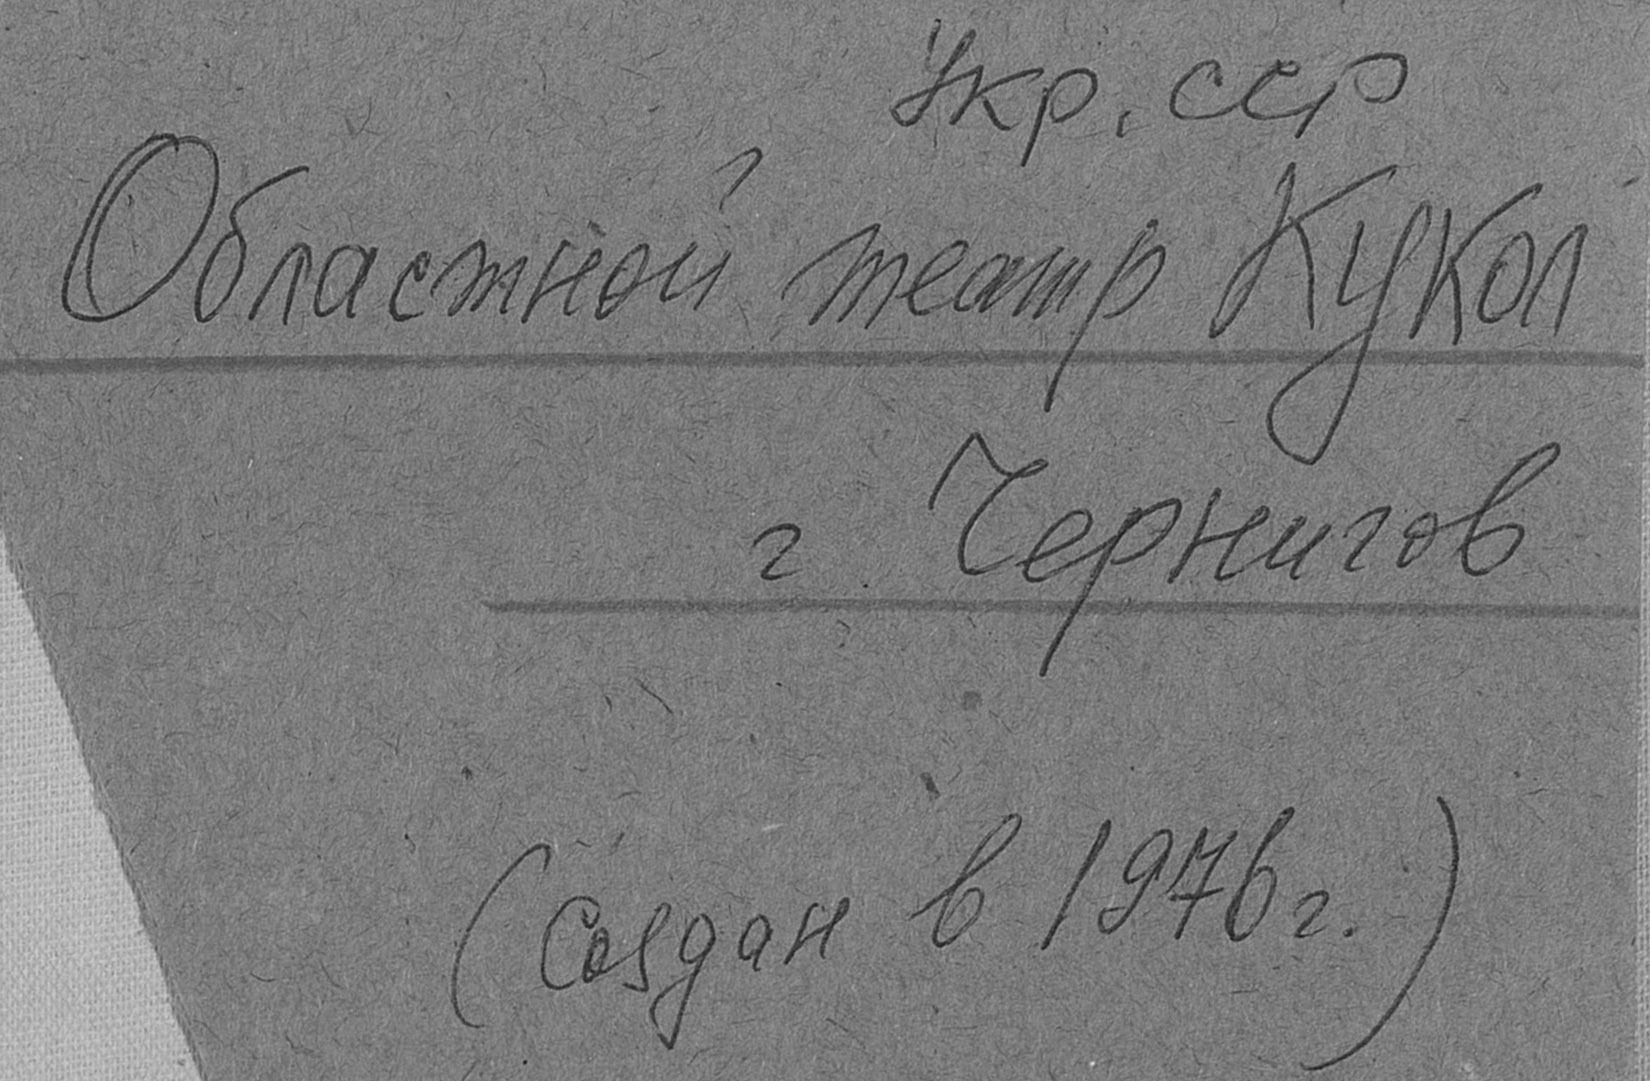 Укр. ССР
Областной театр Кукол
г. Чернигов
(создан в 1976 г.)